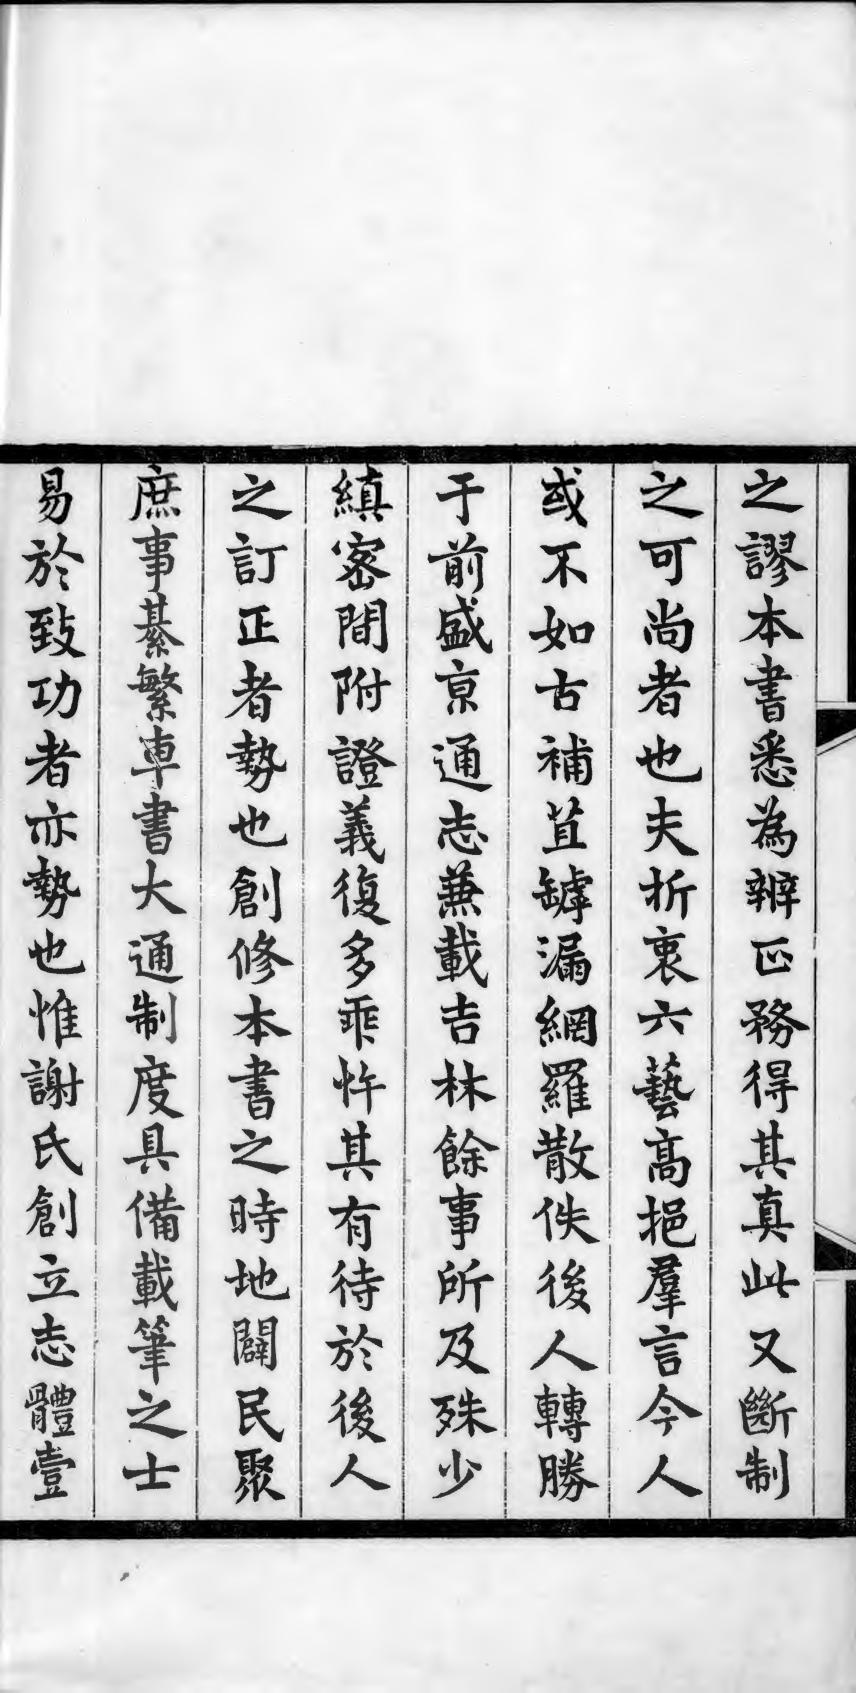 之謬本書悉為辨正務得其真此又斷制
之可尚者也夫折衷六藝高挹羣言今人
或不如古補苴罅漏網羅散佚後人轉勝
于前盛京通志兼載吉林餘事所及殊少
縝密間附證義復多乖忤其有待於後人
之訂正者勢也創修本書之時地闢民聚
庶事綦繁車書大通制度具備載筆之士
易於致功者亦勢也惟謝氏創立志體壹